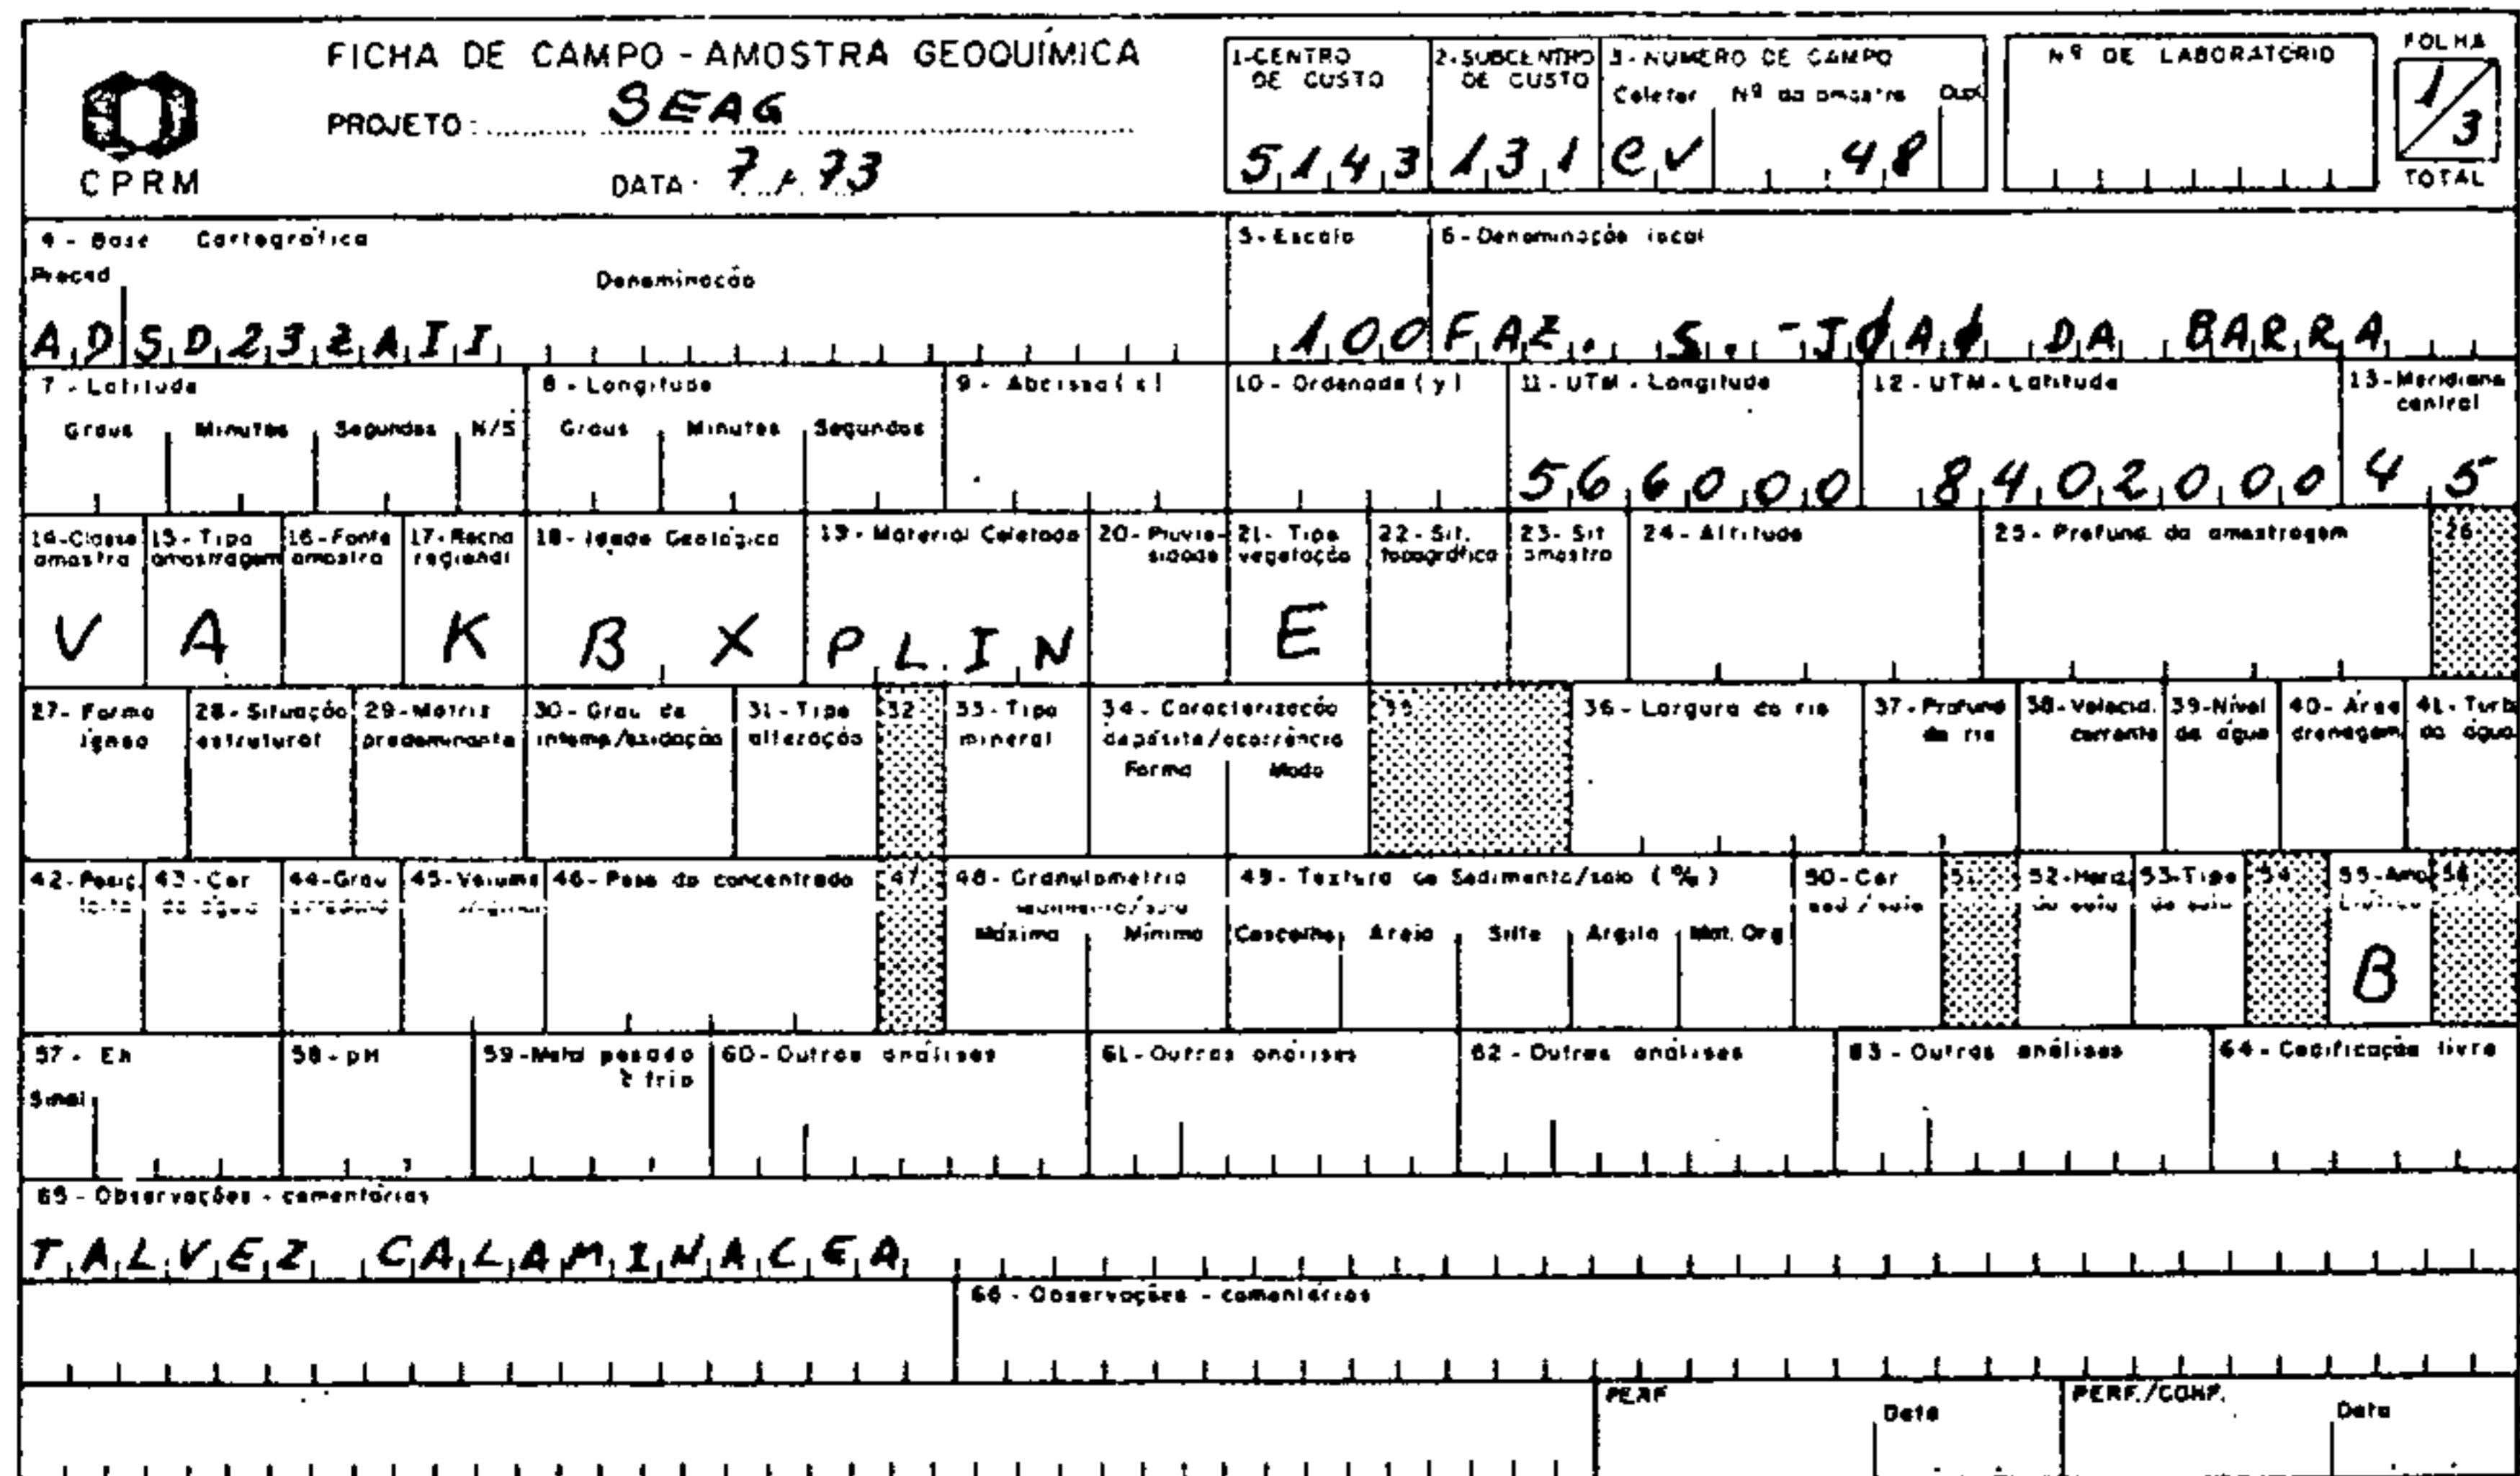 FICHA DE CAMPO - AMOSTRA GEOQUÍMICA
PROJETO: SEAG
DATA: 7 / 73
CPRM
1-CENTRO DE CUSTO
5143
2-SUBCENTRO DE CUSTO
131
3-NÚMERO DE CAMPO
Coletor Nº da amostra Dupl
CV 48
Nº DE LABORATÓRIO
FOLHA
1/3
TOTAL
4 - Base Cartográfica
Preced Denominação
AD SD23ZAII
5-Escala
100
6-Denominação local
FAZ. S. JØAØ DA BARRA
7 - Latitude
Graus Minutos Segundos N/S
8 - Longitude
Graus Minutos Segundos
9 - Abcissa (x)
10 - Ordenada (y)
11 - UTM - Longitude
566000
12 - UTM - Latitude
8402000
13-Meridiano central
45
14-Classe amostra
V
15-Tipo amostragem
A
16-Fonte amostra
17-Rocha regional
K
18-Idade Geológica
B X
19-Material Coletado
PLIN
20-Pluviosidade
21-Tipo vegetação
E
22-Sit. topográfica
23-Sit amostra
24-Altitude
25-Profund. da amostragem
26
27-Forma ígnea
28-Situação estrutural
29-Matriz predominante
30-Grau de intemp./oxidação
31-Tipo alteração
32
33-Tipo mineral
34-Caracterização depósito/ocorrência
Forma Modo
35
36-Largura do rio
37-Profund do rio
38-Velocid. corrente
39-Nível da água
40-Área drenagem
41-Turb da água
42-Posiç.
43-Cor da água
44-Grau
45-Volume original
46-Peso do concentrado
47
48-Granulometria sedimento/solo
Máxima Mínima
49-Textura do Sedimento/solo (%)
Cascalho Areia Silte Argila Mat. Org
50-Cor sed/solo
51
52-Horiz. do solo
53-Tipo de solo
54
55-Amb
B
56
57-Eh
Sinal
58-pH
59-Metal pesado à frio
60-Outras análises
61-Outras análises
62-Outras análises
63-Outras análises
64-Codificação livre
65-Observações - comentários
TALVEZ CALAMINACEA
66-Observações - comentários
PERF Data
PERF./CONF. Data